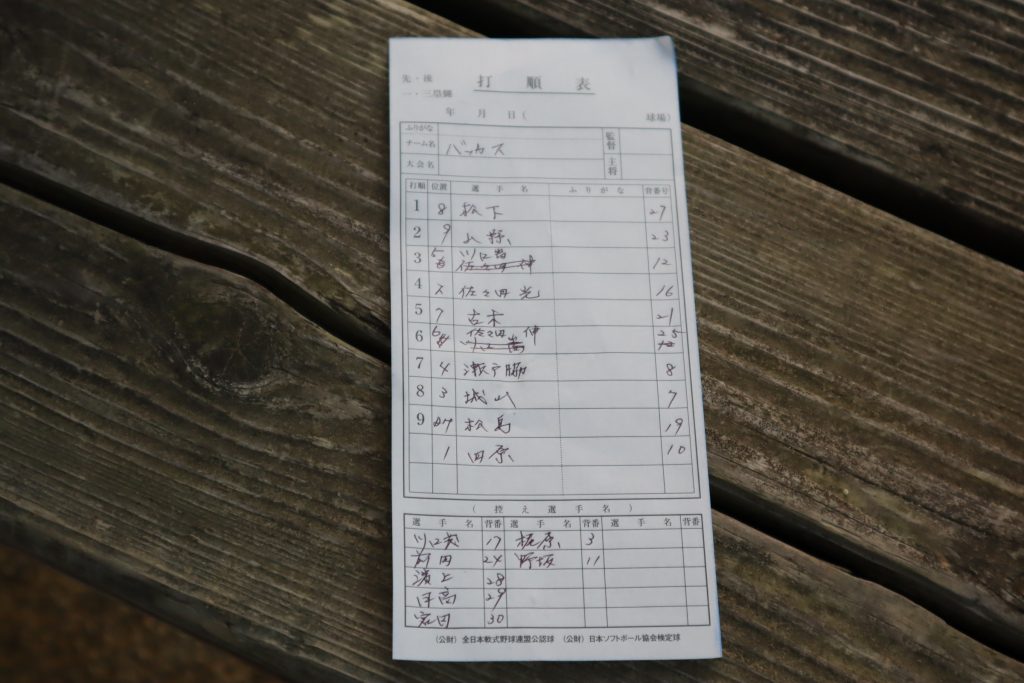 先・後 打順表
一・三塁側
年 月 日( 球場)
ふりがな 監督
チーム名 バッカス
大会名 主将
打順 位置 選手名 ふりがな 背番号
1 8 松下 27
2 9 山野 23
3 5 川口 12
佐々田 伸
4 2 佐々田 光 16
5 7 古木 21
6 6 佐々田 伸 25
7 4 瀬戸脇 8
8 3 城山 7
9 松島 19
1 田原 10
(控え選手名)
選手名 背番 選手名 背番 選手名 背番
川口 17 梶原 3
前田 24 野坂 11
濱上 28
日高 29
宕田 30
(公財) 全日本軟式野球連盟公認球 (公財) 日本ソフトボール協会検定球